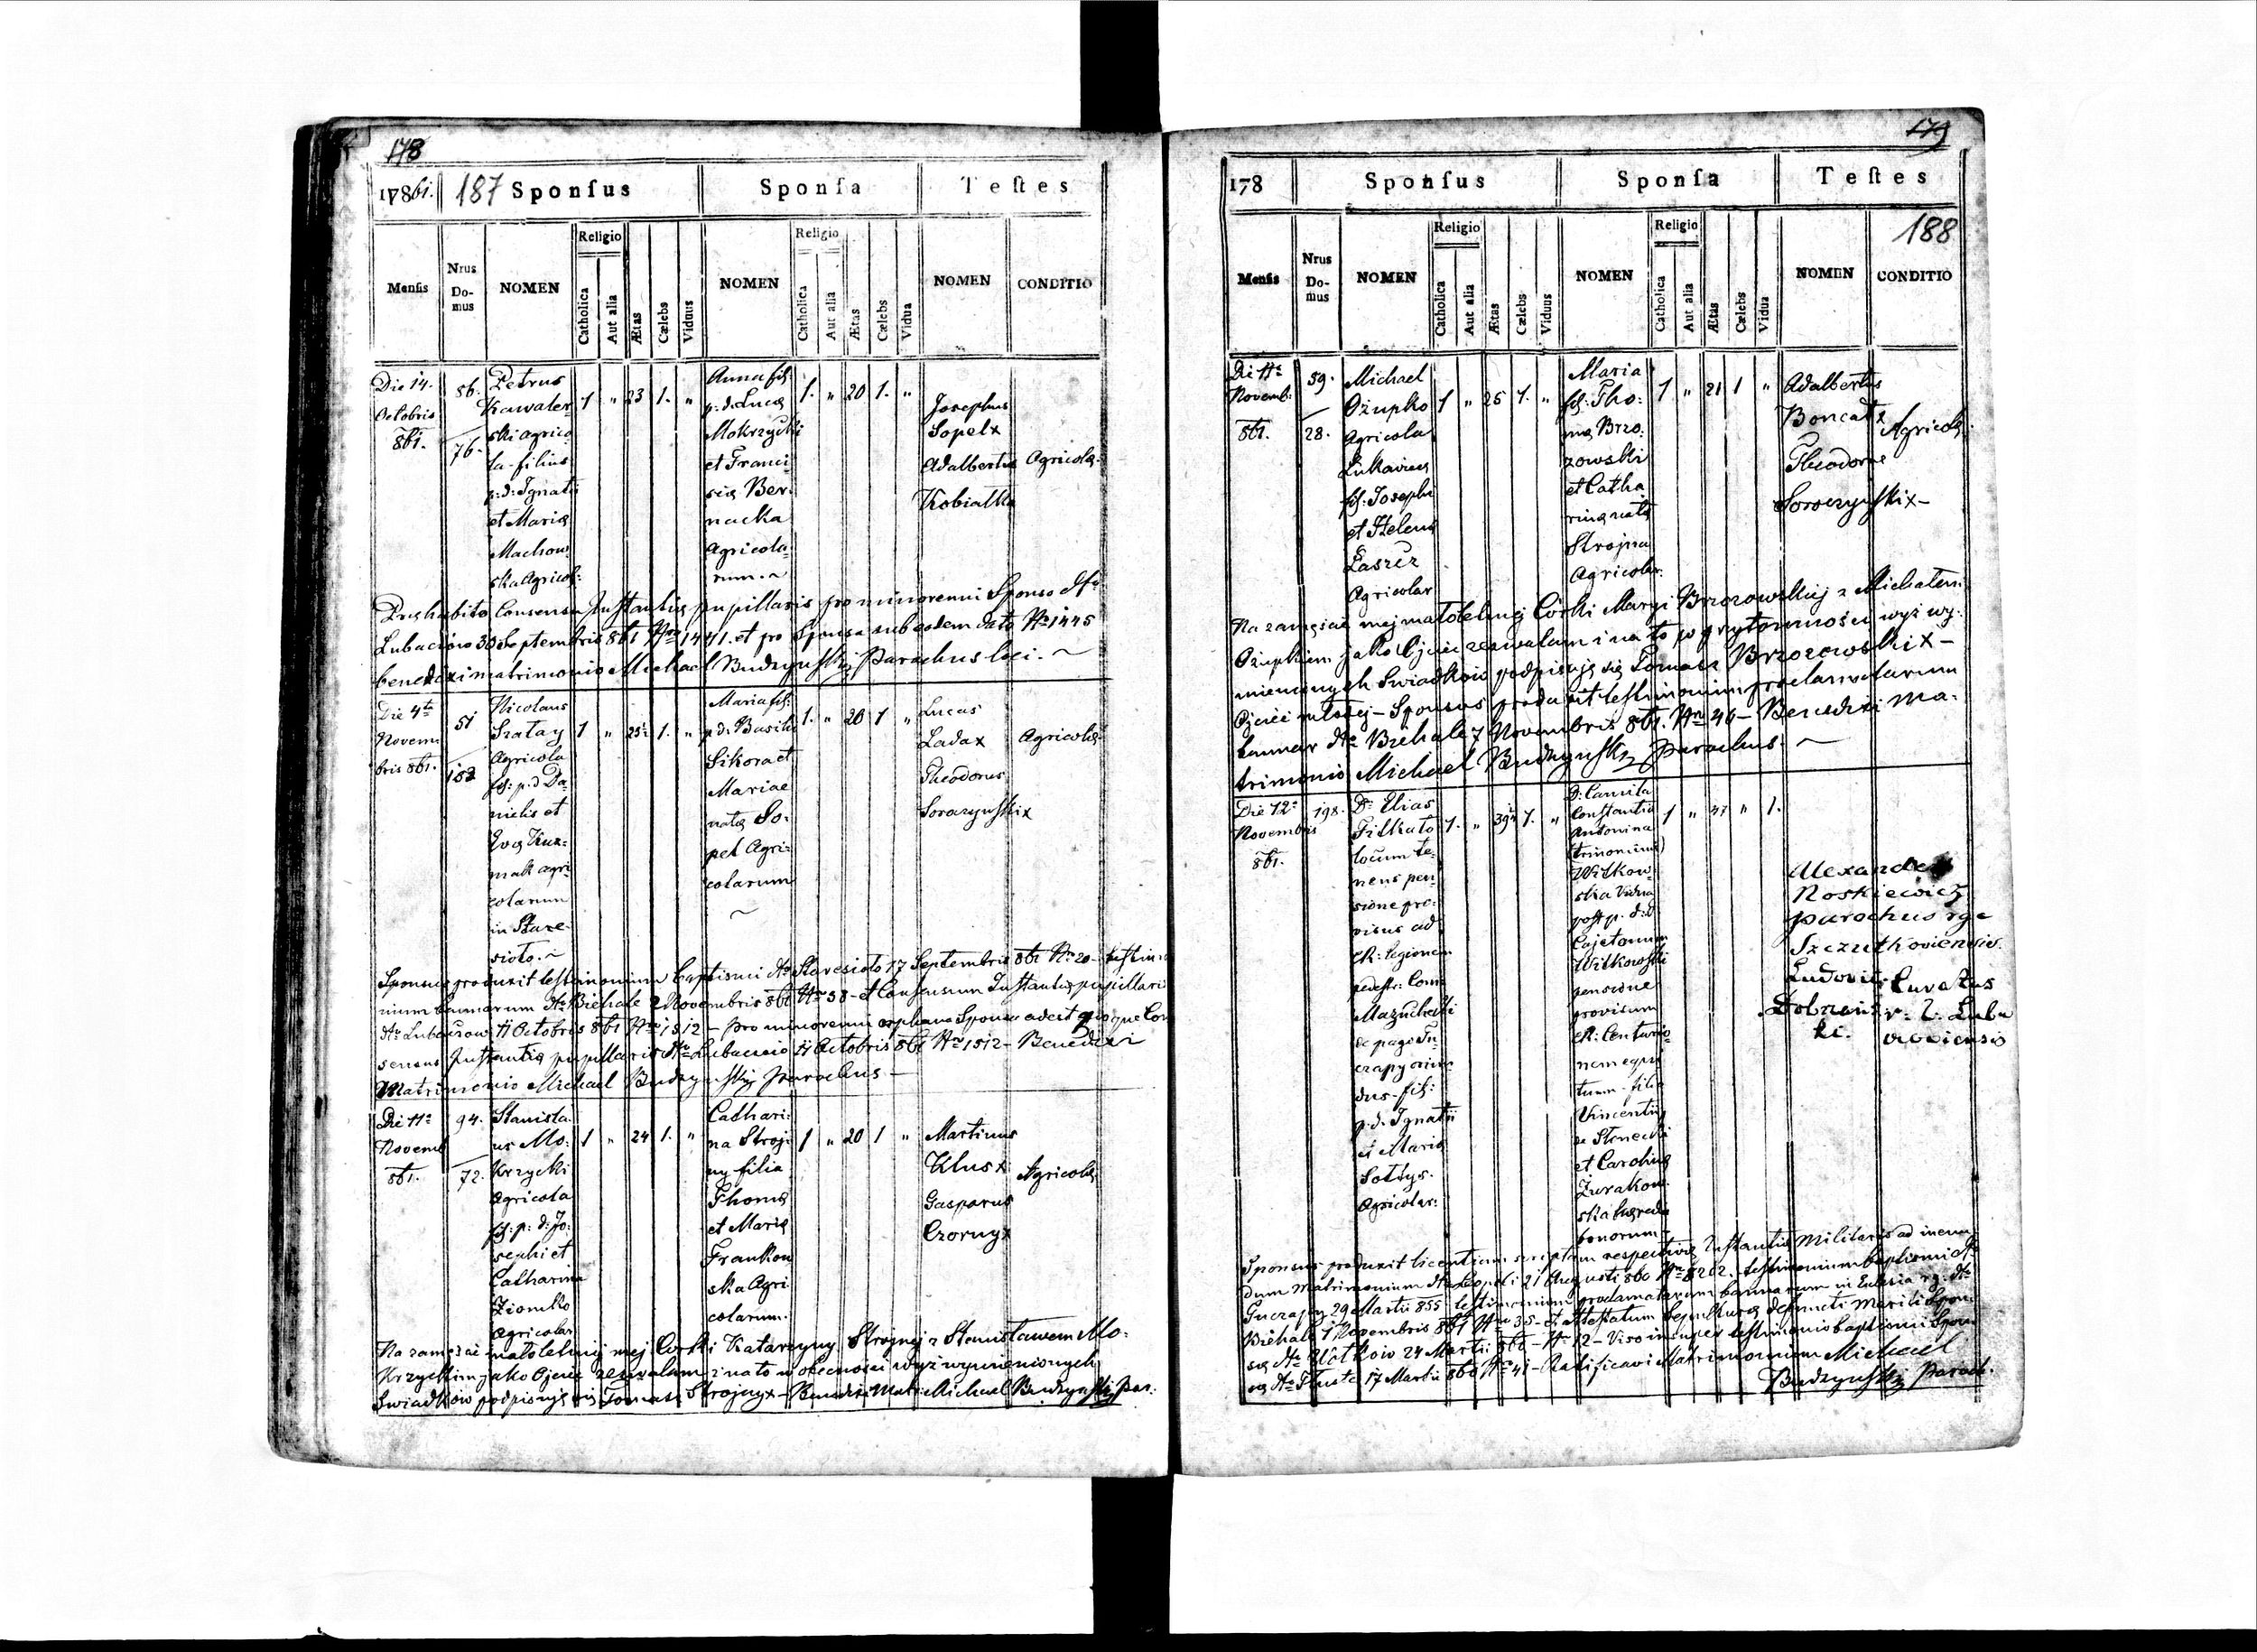 178
1786i. 187 Sponſus Sponſa Teſtes
Menſis
Nrus Do-mus
NOMEN
Religio
Catholica
Aut alia
Ætas
Cælebs
Viduus
NOMEN
Religio
Catholica
Aut alia
Ætas
Cælebs
Vidua
NOMEN
CONDITIO
Die 14.
Octobris
861.
86.
76.
Petrus
Kawaler
ski agrico
la filius
p: d: Ignatii
et Maria
Machow
ska Agricol:
1 " 23 1. "
Anna fil:
p: d: Luca
Mokrzycki
et Franci
sca Ber
nacka
Agricola
rum. ~
1. " 20 1. "
Josephus
Sopel x
Adalbertus
Kobiałka
Agricola
Lubaczow 30 Septembris 861 Nro 1441. et pro Sponsa sub eodem dato No 1445
benedixi matrimonio Michael Budzynski Parochus loci. ~
Die 4ta
Novem
bris 861.
51
152
Nicolaus
Szatay
Agricola
fil: p: d Da
nielis et
Eva Kuz=
niak agri
colarum
in Stare
siolo. ~
1 " 25½ 1. "
Maria fil:
p d: Basilii
Sikora et
Mariae
nata So:
pel Agri:
colarum
~
1. " 20 1 "
Lucas
Lada x
Theodorus
Soroczynski x
Agricola
Sponsus produxit testimonium baptismi de Staresioło 17 Septembris 861 No 20 testim
nium bannorum de Bichale 2 Novembris 861 Nro 38 et Consensum Instantia pupillari
de Lubaczow 11 Octobris 861 Nro 1512 - pro minorenni orphana Sponsa adest quoque Con
sensus Instantia pupillaris de Lubaczow 11 Octobris 861 Nro 1512 - Benedixi
Matrimonio Michael Budzynski parochus -
Die 11a
Novemb
861.
94.
72.
Stanisla
us Mo:
krzycki
Agricola
fil: p: d: Jo:
sephi et
Catharina
Ziomko
Agricolar
1 " 24 1. "
Cathari:
na Stroji
ny filia
Thoma
et Maria
Frankow
ska Agri
colarum.
1 " 20 1 "
Martinus
Klus x
Gasparus
Czorny x
Agricola
Na zamęście małoletniej mej Corki Katarzyny Strojnej z Stanisławem Mo:
krzyckim jako Ojciec zezwalam i na to w obecności wyż wzmienionych
Swiadków podpisuję się Tomasz Strojny x - Benedixi Matr: Michael Budzynski par:
179
178 Sponſus Sponſa Teſtes
188
Menſis
Nrus Do-mus
NOMEN
Religio
Catholica
Aut alia
Ætas
Cælebs
Viduus
NOMEN
Religio
Catholica
Aut alia
Ætas
Cælebs
Vidua
NOMEN
CONDITIO
Die 11a
Novemb:
861.
59.
28.
Michael
Ożupko
Agricola
fil: Josephi
et Helena
Łaszcz
Agricolar
1 " 25 1. "
Maria
fil: Tho:
ma Brzo:
zowski
et Catha
rina nata
Strojna
Agricolar.
1 " 21 1 "
Adalbertus
Boncar x
Theodorus
Soroczynski x -
Agricola
Na zamęście mej małoletniej Córki Maryi Brzozowskiej z Michałem
Ożupkiem jako Ojciec zezwalam i na to w przytomności wyż wy:
mienionych Swiadków podpisuję się Tomasz Brzozowski x -
Ojciec młodej - Sponsus produxit testimonium proclamatarum
bannor de Bichale 7 Novembris 861. Nro 46 - Benedixi Ma:
trimonio Michael Budzynski parochus. ~
Die 12a
Novembris
861.
198.
Dr Elias
locum te
nens pen
sione pro:
visus ad
CR: legionem
pedestr: Com
Mazuchelli
de pago
dus - fil:
p: d: Ignatii
et Maria
Sołtys.
Agricolar:
1. " 39½ 1. "
D: Camila
Constantia
Antonina
(trinomina)
Witkow
ska Vidua
post p: d: D
Cajetanum
Witkowski
pensione
provisum
CR: Centurio
nem equi
tum - filia
Vincentii
et Carolina
Żurakow
ska
bonorum
1 " 47 " 1.
Alexander
Noskiewicz
parochus r g c
Szczutkoviensis.
Ludovic
Dobrzans
ki.
Curatus
r. l. Luba
czoviensis
Sponsus produxit licentiam scriptam respectiva Instantia Militaris ad ineun
dum Matrimonium de Leopoli 21 Augusti 860 No 8202. testimonium baptismi de
29 Martii 855 testimonium proclamatarum bannorum in Eclesia r g: de
Bichale 1 Novembris 861 No 35 - et attestatum sepultura defuncti mariti Spon
sa de 24 Martii 860 - No 12 - Viso insuper testimonio baptismi Spon
sa de Tłuste 17 Martii 860 No 41 - Ratificavi Matrimonium Michael
Budzynski Paroch: